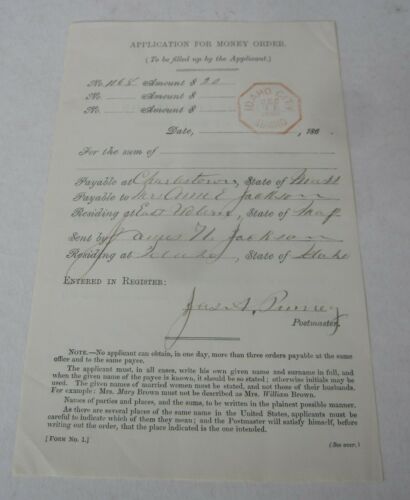 APPLICATION FOR MONEY ORDER.
(To be filled up by the Applicant.)
No. 1168 Amount $ 20
No. Amount $
No. Amount $
IDAHO CITY
IDAHO
Date, , 186 .
For the sum of
Payable at Charlestown, State of Mass
Payable to Mrs Jackson
Residing at East , State of Mass
Sent by James W. Jackson
Residing at , State of Idaho
ENTERED IN REGISTER:
Jas A.
Postmaster.
NOTE.—No applicant can obtain, in one day, more than three orders payable at the same
office and to the same payee.
The applicant must, in all cases, write his own given name and surname in full, and
when the given name of the payee is known, it should be so stated; otherwise initials may be
used. The given names of married women must be stated, and not those of their husbands.
For example: Mrs. Mary Brown must not be described as Mrs. William Brown.
Names of parties and places, and the sums, to be written in the plainest possible manner.
As there are several places of the same name in the United States, applicants must be
careful to indicate which of them they mean; and the Postmaster will satisfy himself, before
writing out the order, that the place indicated is the one intended.
[FORM No. 1.]
(See over.)